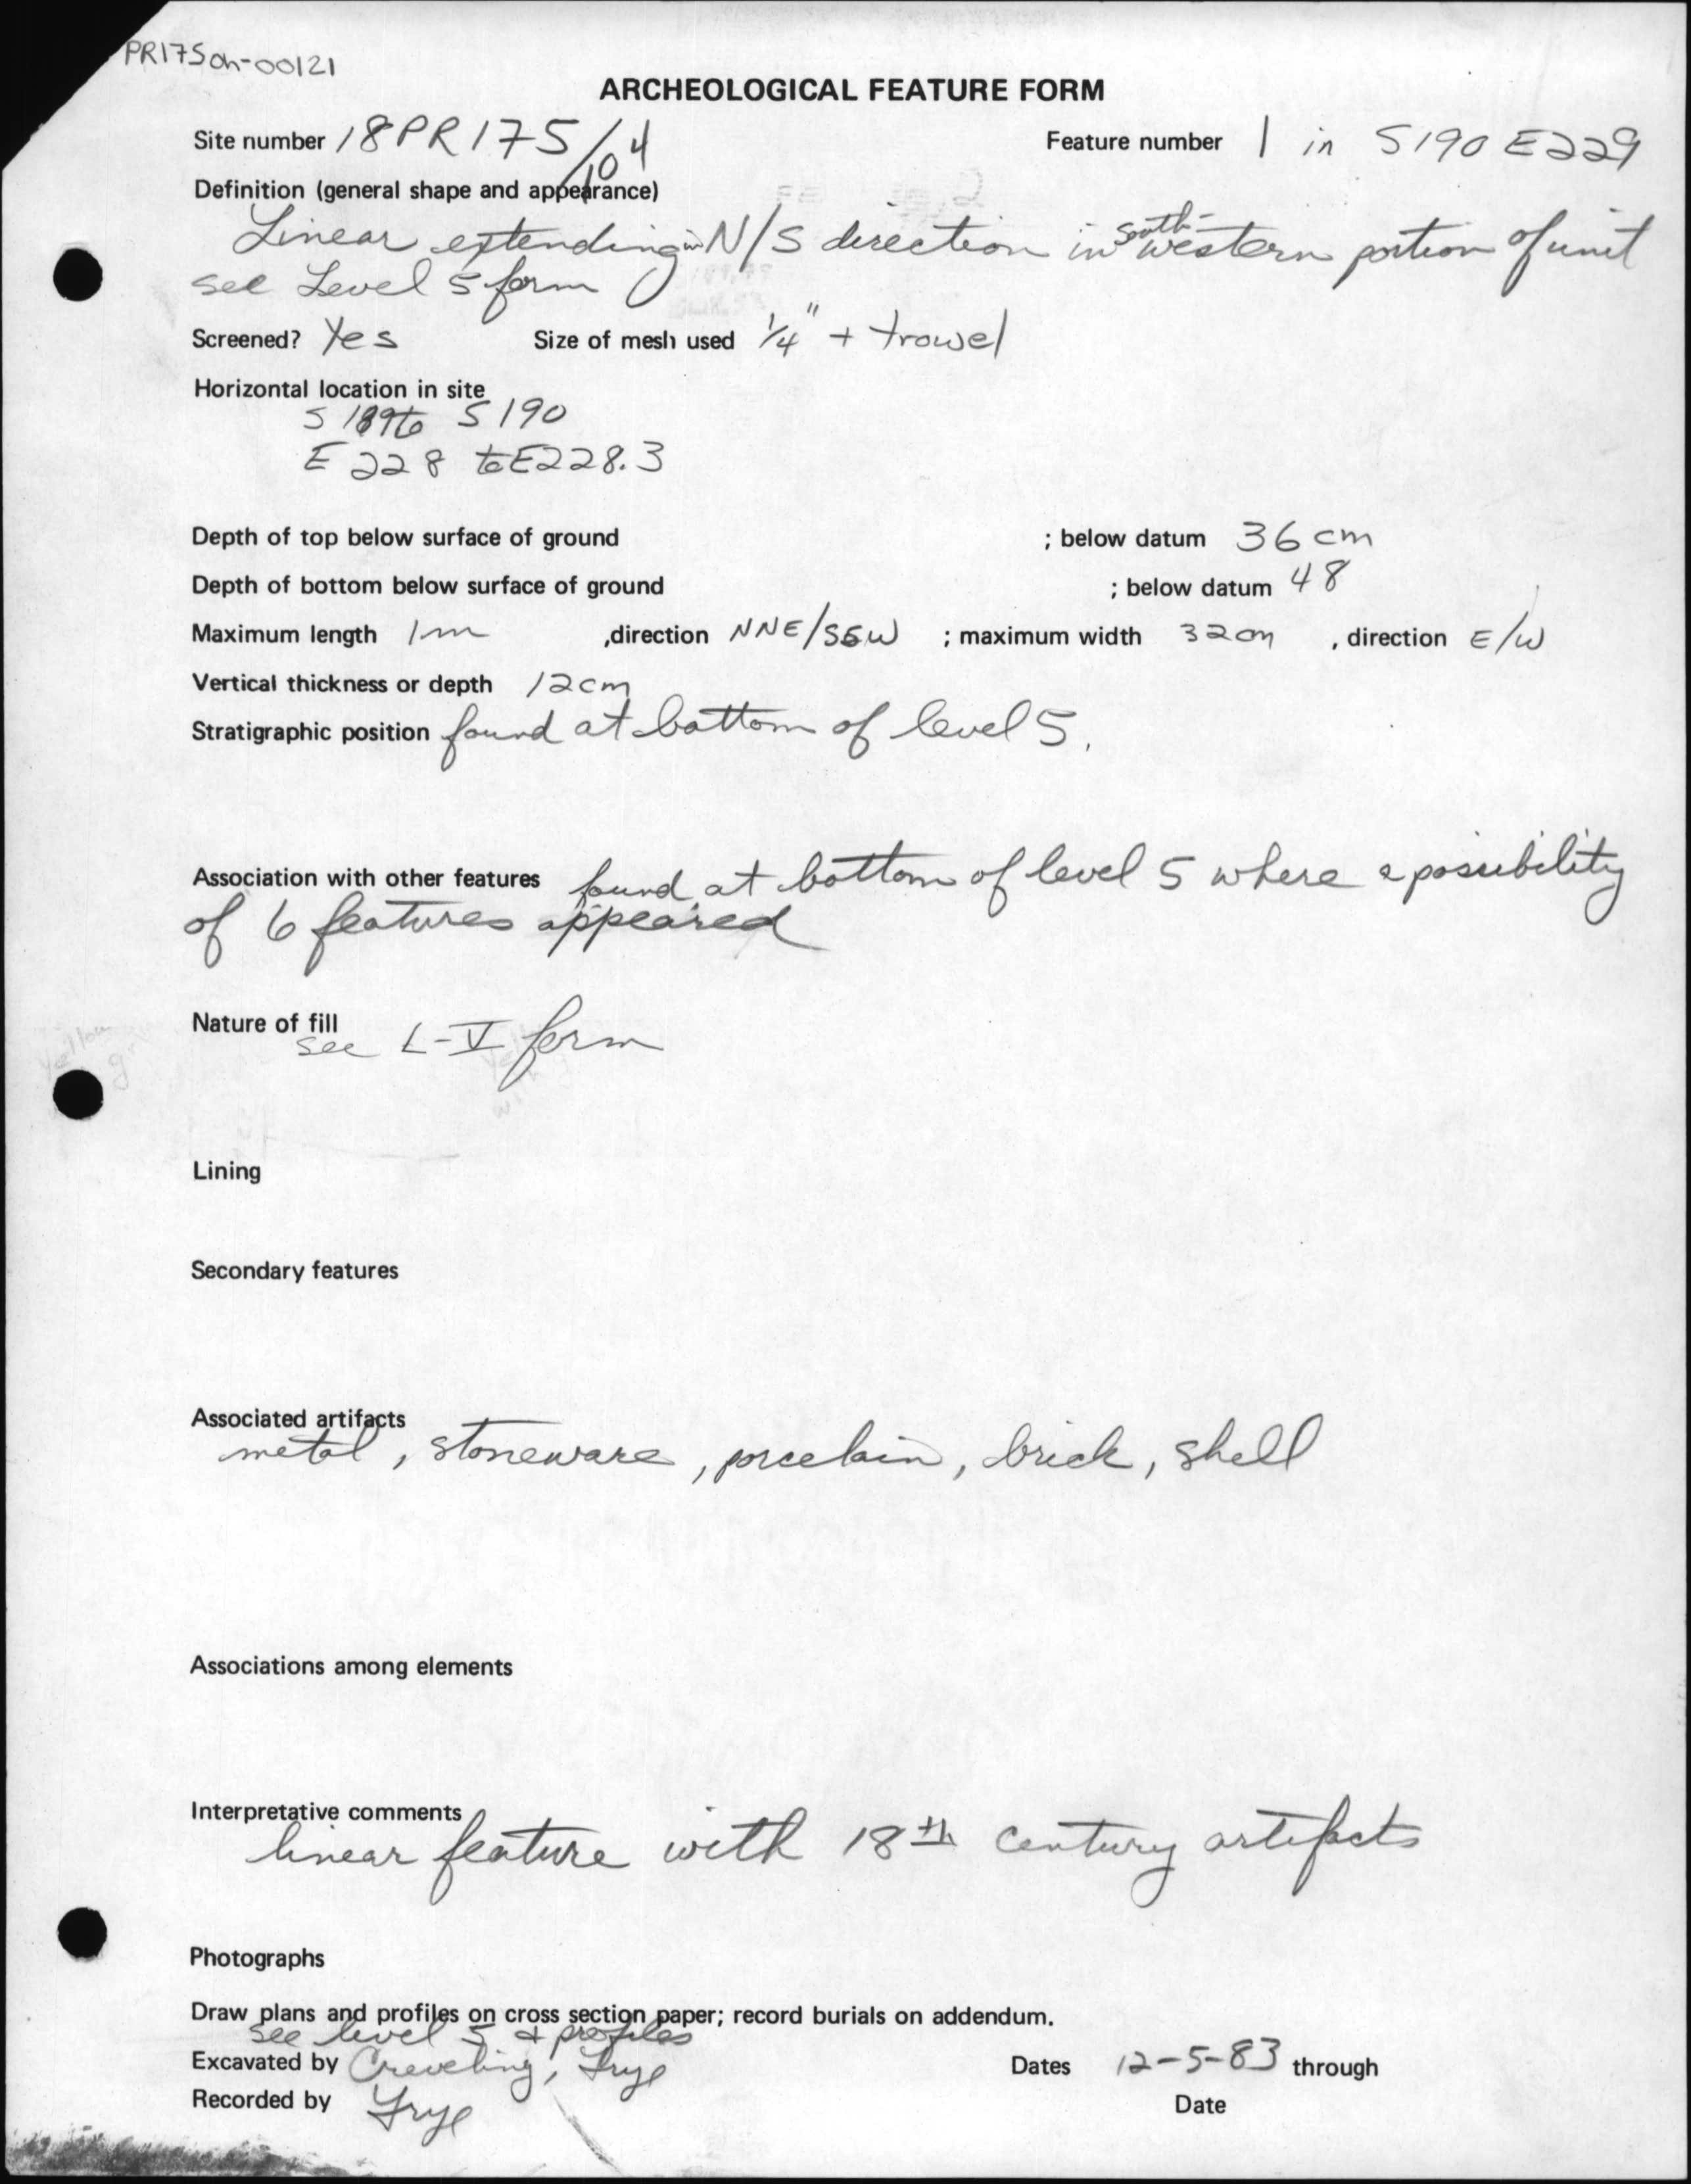 PR175oh-00121
ARCHEOLOGICAL FEATURE FORM
Site number 18PR175/104 Feature number 1 in S190 E229
Definition (general shape and appearance)
Linear extending in N/S direction in south-western portion of unit
see Level 5 form
Screened? Yes Size of mesh used 1/4" + trowel
Horizontal location in site
S 189 to S190
E 228 to E228.3
Depth of top below surface of ground ; below datum 36 cm
Depth of bottom below surface of ground ; below datum 48
Maximum length 1m ,direction NNE/SSW ; maximum width 32cm , direction E/W
Vertical thickness or depth 12cm
Stratigraphic position found at bottom of level 5.
Association with other features found at bottom of level 5 where a possibility
of 6 features appeared
Nature of fill
see L-V form
Lining
Secondary features
Associated artifacts
metal, stoneware, porcelain, brick, shell
Associations among elements
Interpretative comments
linear feature with 18th century artifacts
Photographs
Draw plans and profiles on cross section paper; record burials on addendum.
see level 5 + profiles
Excavated by Creveling, Frye Dates 12-5-83 through
Recorded by Frye Date